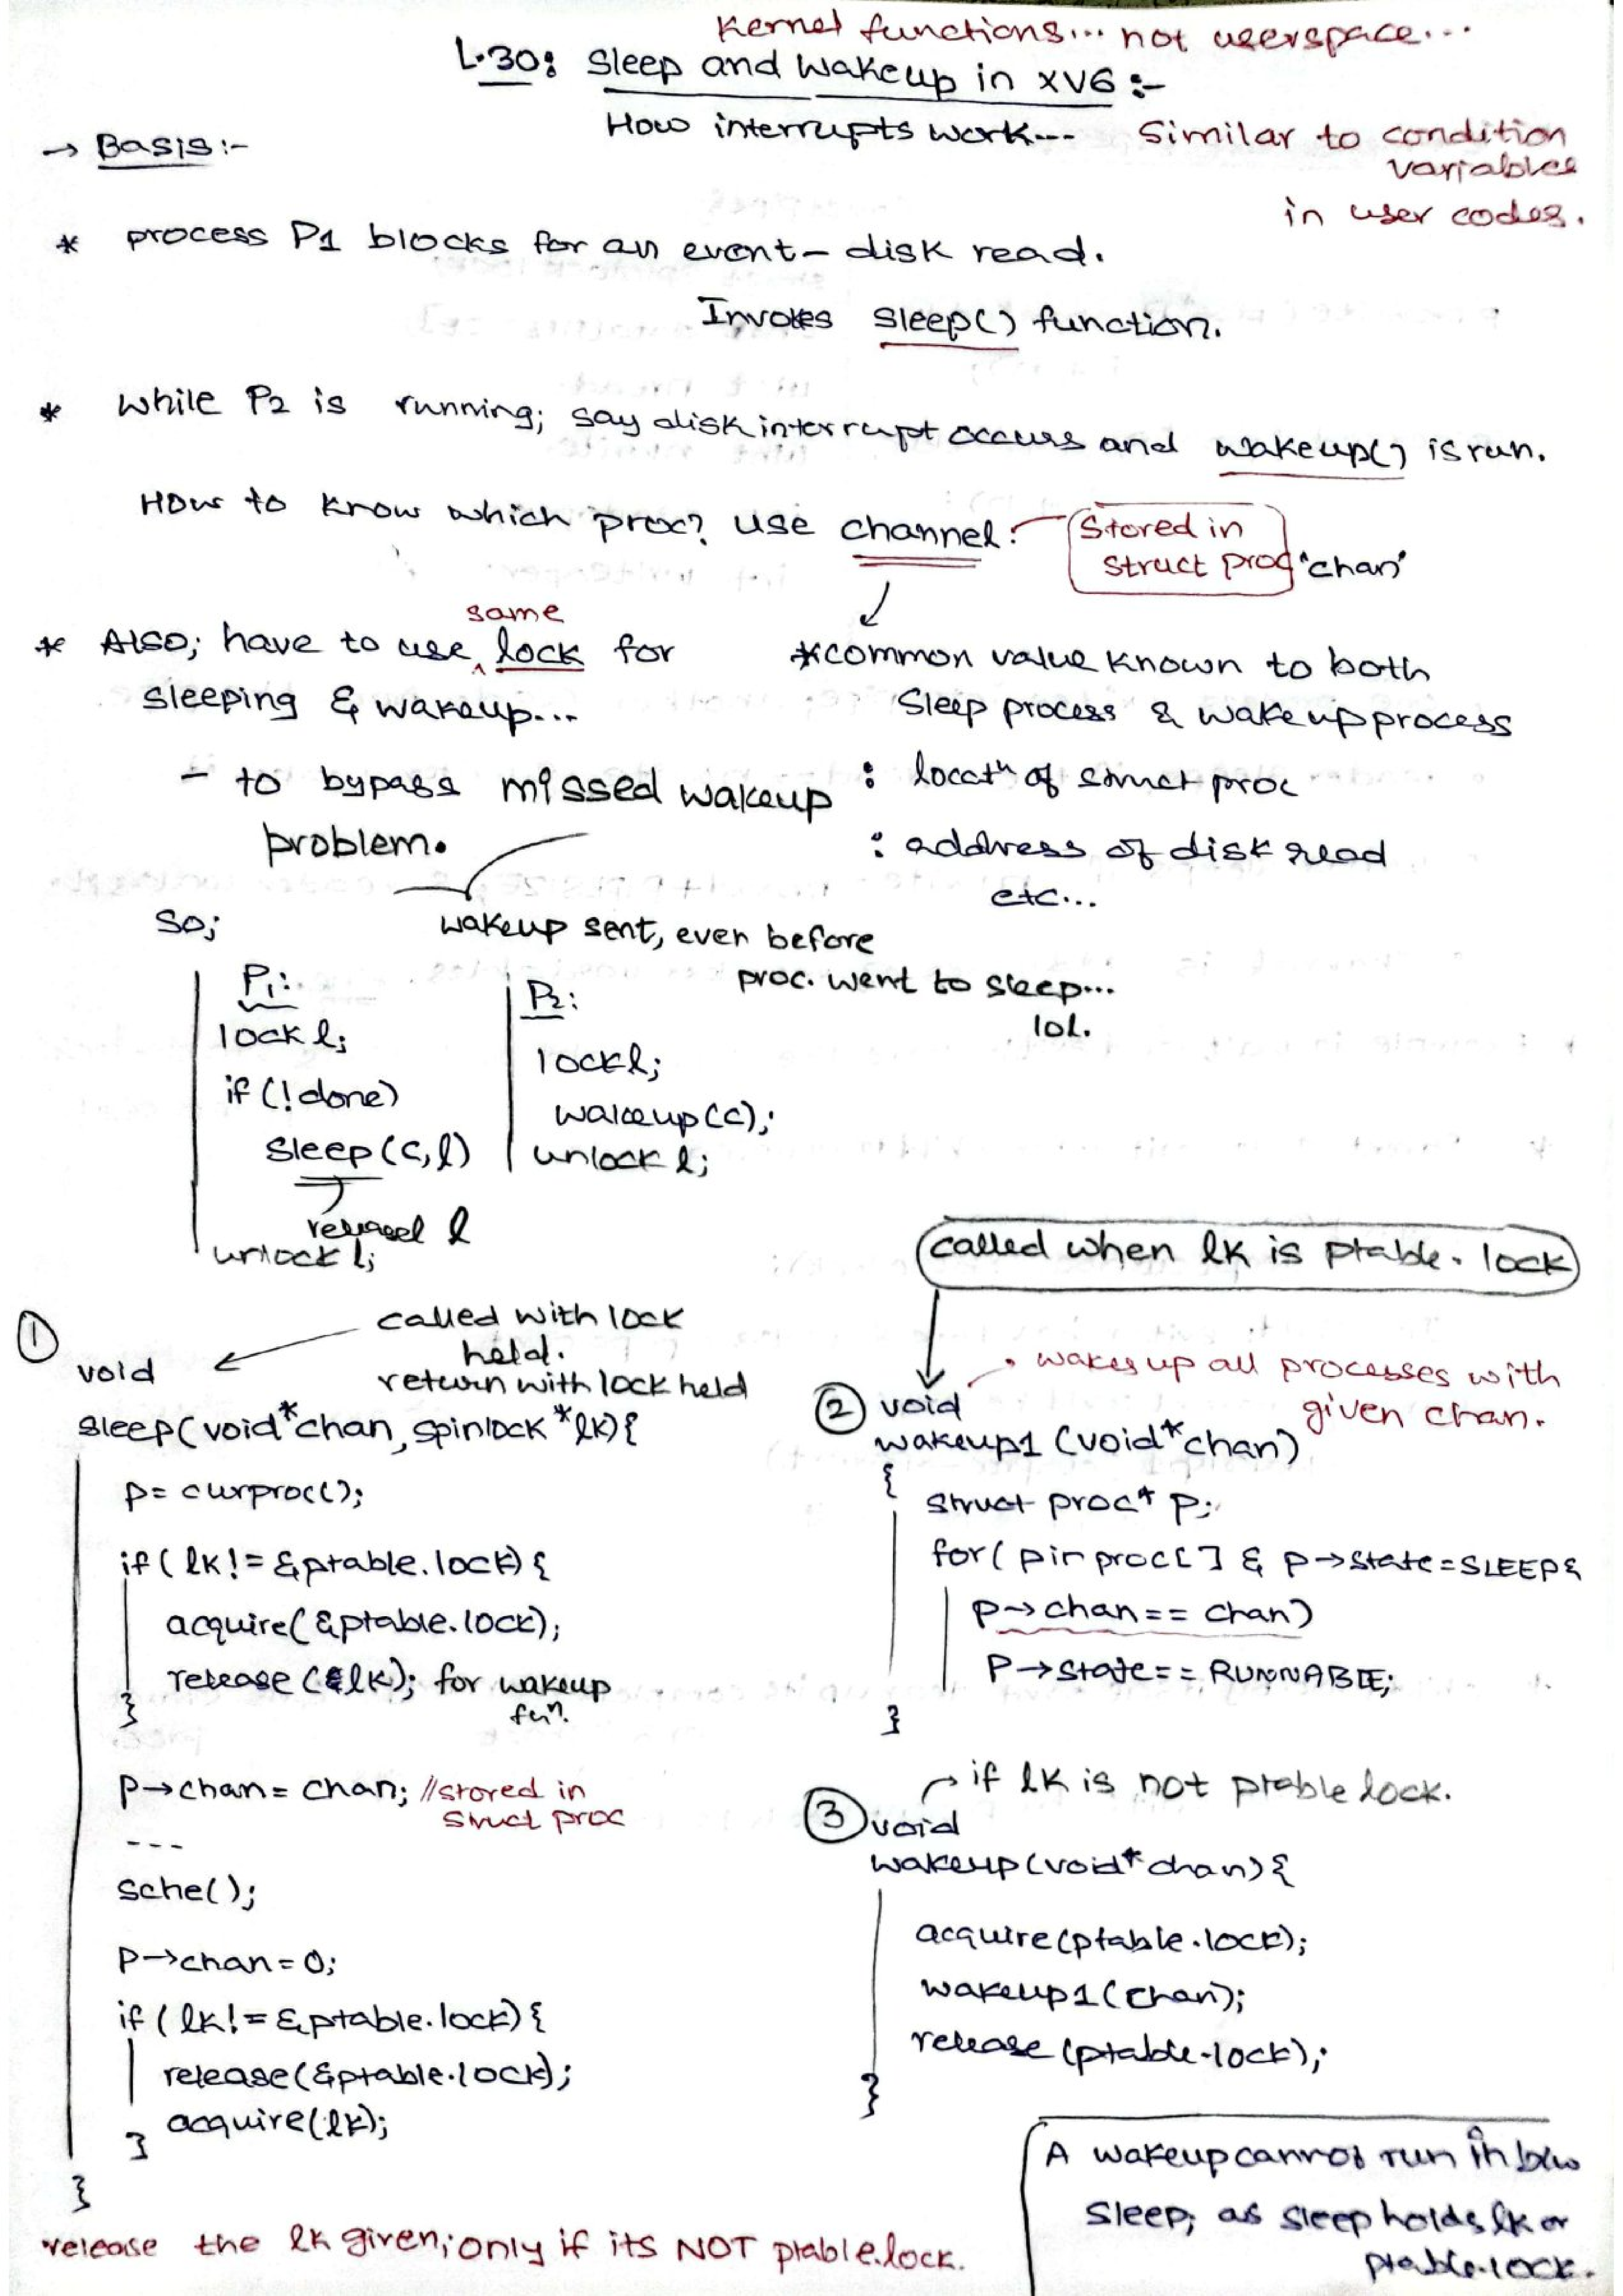 Kernel functions... not userspace...
L.30: Sleep and Wakeup in XV6 :-
How interrupts work---
Similar to condition
variables
in user codes.
→ Basis:-
* process P1 blocks for an event - disk read.
Invokes sleep() function.
* while P2 is running; say disk interrupt occurs and wakeup() is run.
How to know which proc? use channel.
Stored in
struct proc 'chan'
* Also; have to use same lock for
sleeping & wakeup...
- to bypass missed wakeup
problem.
wakeup sent, even before
proc. went to sleep...
lol.
*common value known to both
Sleep process & wakeup process
: locatn of struct proc
: address of disk read
etc...
So;
P1:
lock l;
if (!done)
sleep(c,l)
released l
unlock l;
P2:
lock l;
wakeup(c);
unlock l;
①
called with lock
held.
return with lock held
void
sleep(void*chan, spinlock *lk){
p= curproc();
if( lk != &ptable.lock){
acquire( &ptable.lock);
release ( lk); for wakeup
fun.
}
p→chan= chan; //stored in
struct proc
---
sche();
p→chan= 0;
if ( lk != &ptable.lock){
release(&ptable.lock);
acquire(lk);
}
}
release the lk given; only if its NOT ptable.lock.
called when lk is ptable.lock
• wakes up all processes with
given chan.
② void
wakeup1 (void*chan)
{
struct proc* p;
for( p in proc[] & p→state=SLEEP&
p→chan== chan)
p→state== RUNNABLE;
}
→ if lk is not ptable lock.
③ void
wakeup(void*chan){
acquire(ptable.lock);
wakeup1(chan);
release (ptable.lock);
}
A wakeup cannot run in b/w
sleep; as sleep holds lk or
ptable.lock.